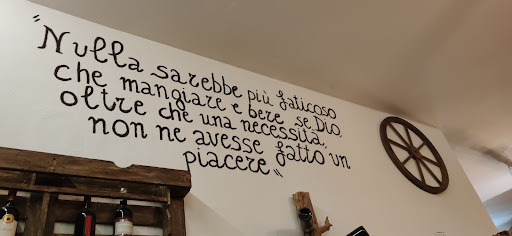 "Nulla sarebbe più faticoso
che mangiare e bere se Dio
oltre che una necessità,
non ne avesse fatto un
piacere"